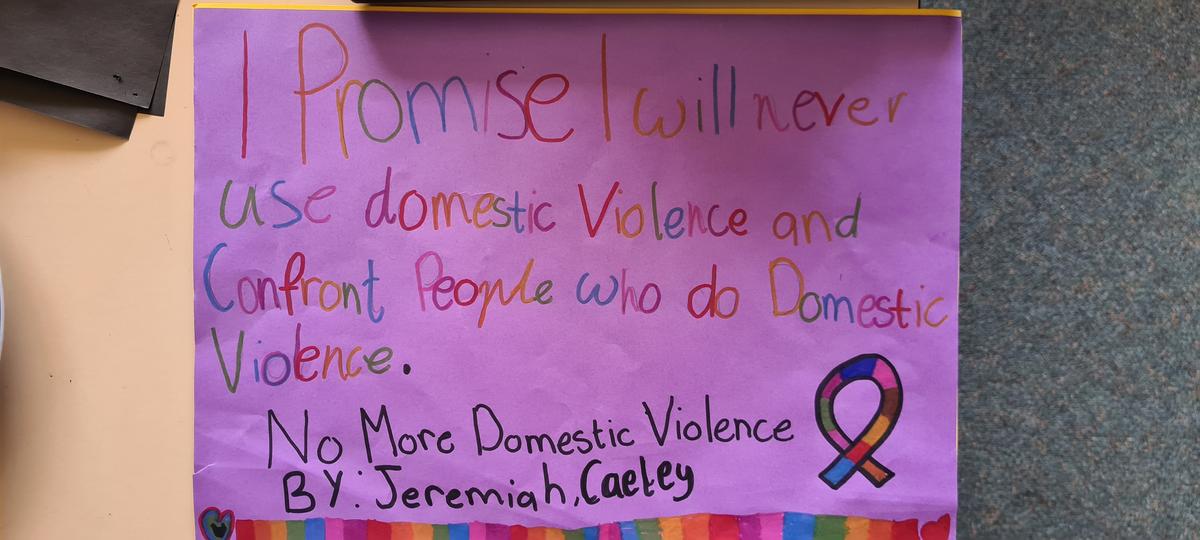 I Promise I will never
use domestic Violence and
Confront People who do Domestic
Violence.
No More Domestic Violence
BY: Jeremiah, Caeley